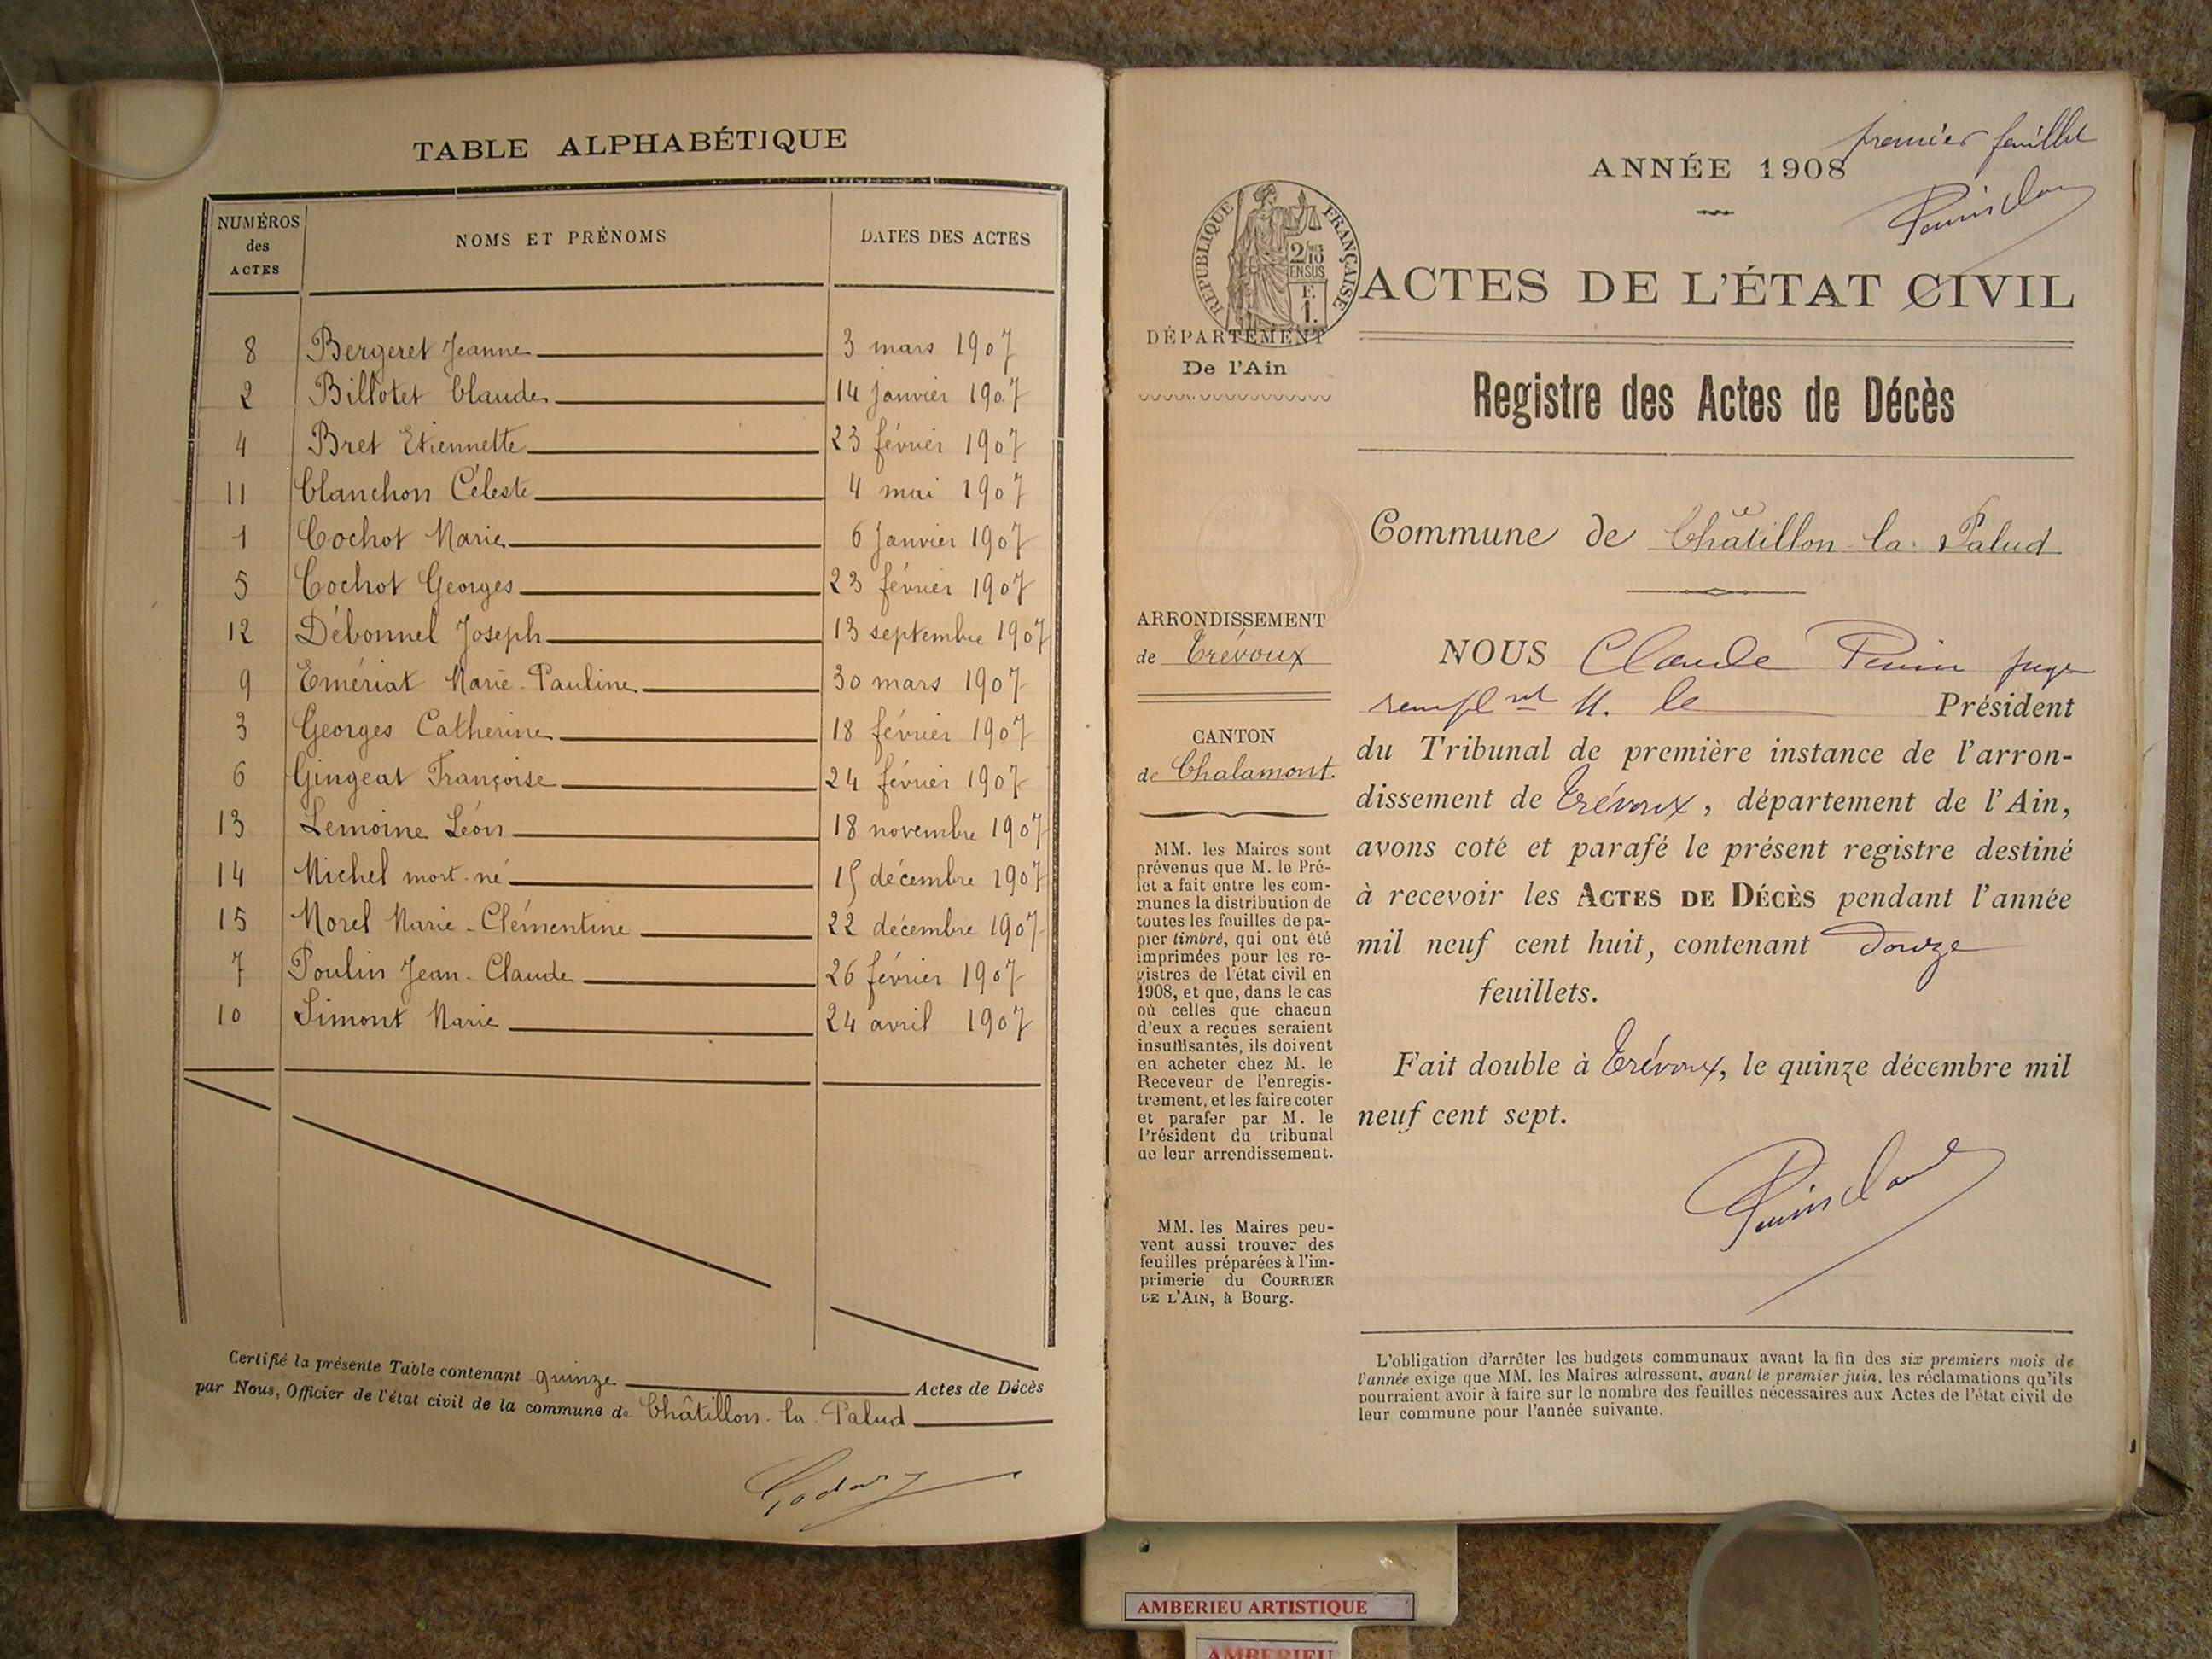 TABLE ALPHABÉTIQUE
NUMÉROS des ACTES NOMS ET PRÉNOMS DATES DES ACTES
8 Bergeret Jeanne 3 mars 1907
2 Billotet Claude 14 janvier 1907
4 Bret Etiennette 23 février 1907
11 Clanchon Céleste 4 mai 1907
1 Cochot Marie 6 Janvier 1907
5 Cochot Georges 23 février 1907
12 Débonnel Joseph 13 septembre 1907
9 Emériat Marie-Pauline 30 mars 1907
3 Georges Catherine 18 février 1907
6 Gingeat Françoise 24 février 1907
13 Lemoine Léon 18 novembre 1907
14 Michel mort-né 15 décembre 1907
15 Morel Marie-Clémentine 22 décembre 1907
7 Poulin Jean-Claude 26 février 1907
10 Simont Marie 24 avril 1907
Certifié la présente Table contenant quinze Actes de Décès
par Nous, Officier de l'état civil de la commune de Châtillon-la-Palud
premier feuillet
ANNÉE 1908
RÉPUBLIQUE FRANÇAISE
2/10
EN SUS
F.
1.
ACTES DE L'ÉTAT CIVIL
DÉPARTEMENT
De l'Ain
Registre des Actes de Décès
Commune de Châtillon-la-Palud
ARRONDISSEMENT
de Trévoux
CANTON
de Chalamont.
MM. les Maires sont
prévenus que M. le Pré-
fet a fait entre les com-
munes la distribution de
toutes les feuilles de pa-
pier timbré, qui ont été
imprimées pour les re-
gistres de l'état civil en
1908, et que, dans le cas
où celles que chacun
d'eux a reçues seraient
insuffisantes, ils doivent
en acheter chez M. le
Receveur de l'enregis-
trement, et les faire coter
et parafer par M. le
Président du tribunal
de leur arrondissement.
MM. les Maires peu-
vent aussi trouver des
feuilles préparées à l'im-
primerie du COURRIER
DE L'AIN, à Bourg.
NOUS Claude juge
rempl nt M. le Président
du Tribunal de première instance de l'arron-
dissement de Trévoux, département de l'Ain,
avons coté et parafé le présent registre destiné
à recevoir les ACTES DE DÉCÈS pendant l'année
mil neuf cent huit, contenant Douze
feuillets.
Fait double à Trévoux, le quinze décembre mil
neuf cent sept.
L'obligation d'arrêter les budgets communaux avant la fin des six premiers mois de
l'année exige que MM. les Maires adressent, avant le premier juin, les réclamations qu'ils
pourraient avoir à faire sur le nombre des feuilles nécessaires aux Actes de l'état civil de
leur commune pour l'année suivante.
AMBERIEU ARTISTIQUE
AMBERIEU